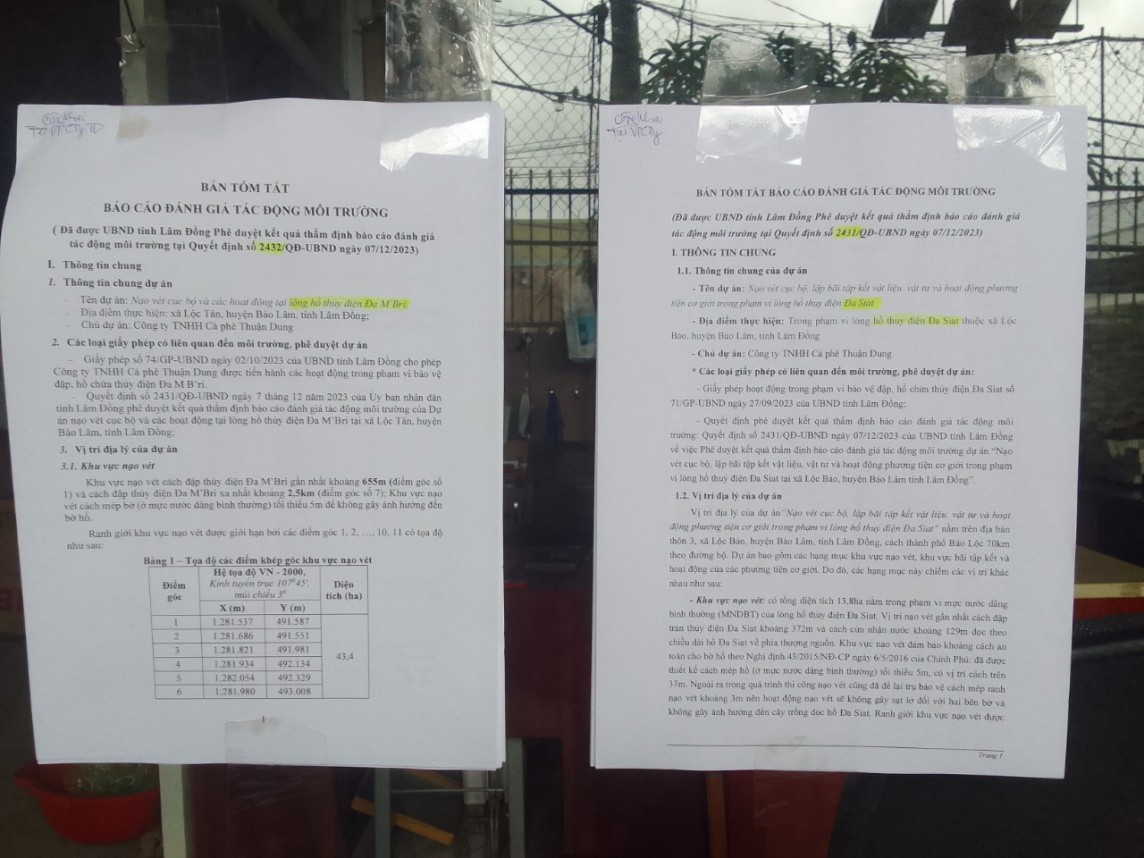 Công khai
Tại VP Cty TD
BẢN TÓM TẮT
BÁO CÁO ĐÁNH GIÁ TÁC ĐỘNG MÔI TRƯỜNG
( Đã được UBND tỉnh Lâm Đồng Phê duyệt kết quả thẩm định báo cáo đánh giá
tác động môi trường tại Quyết định số 2432/QĐ-UBND ngày 07/12/2023)
I. Thông tin chung
1. Thông tin chung dự án
- Tên dự án: Nạo vét cục bộ và các hoạt động tại lòng hồ thủy điện Đa M'Bri;
- Địa điểm thực hiện: xã Lộc Tân, huyện Bảo Lâm, tỉnh Lâm Đồng;
- Chủ dự án: Công ty TNHH Cà phê Thuận Dung
2. Các loại giấy phép có liên quan đến môi trường, phê duyệt dự án
- Giấy phép số 74/GP-UBND ngày 02/10/2023 của UBND tỉnh Lâm Đồng cho phép
Công ty TNHH Cà phê Thuận Dung được tiến hành các hoạt động trong phạm vi bảo vệ
đập, hồ chứa thủy điện Đa M B'ri.
- Quyết định số 2431/QĐ-UBND ngày 7 tháng 12 năm 2023 của Ủy ban nhân dân
tỉnh Lâm Đồng phê duyệt kết quả thẩm định báo cáo đánh giá tác động môi trường của Dự
án nạo vét cục bộ và các hoạt động tại lòng hồ thủy điện Đa M'Bri tại xã Lộc Tân, huyện
Bảo Lâm, tỉnh Lâm Đồng;
3. Vị trí địa lý của dự án
3.1. Khu vực nạo vét
Khu vực nạo vét cách đập thủy điện Đa M'Bri gần nhất khoảng 655m (điểm góc số
1) và cách đập thủy điện Đa M'Bri xa nhất khoảng 2,5km (điểm góc số 7); Khu vực nạo
vét cách mép bờ (ở mực nước dâng bình thường) tối thiểu 5m để không gây ảnh hưởng đến
bờ hồ.
Ranh giới khu vực nạo vét được giới hạn bởi các điểm góc 1, 2, …, 10, 11 có tọa độ
như sau:
Bảng 1 – Tọa độ các điểm khép góc khu vực nạo vét
Điểm góc Hệ tọa độ VN - 2000, Kinh tuyến trục 107°45', múi chiếu 3° Diện tích (ha)
X (m) Y (m)
1 1.281.537 491.587
2 1.281.686 491.551
3 1.281.821 491.981
43,4
4 1.281.934 492.134
5 1.282.054 492.329
6 1.281.980 493.008
1
Công khai
Tại VPCty
BẢN TÓM TẮT BÁO CÁO ĐÁNH GIÁ TÁC ĐỘNG MÔI TRƯỜNG
(Đã được UBND tỉnh Lâm Đồng Phê duyệt kết quả thẩm định báo cáo đánh giá
tác động môi trường tại Quyết định số 2431/QĐ-UBND ngày 07/12/2023)
I. THÔNG TIN CHUNG
1.1. Thông tin chung của dự án
- Tên dự án: Nạo vét cục bộ, lập bãi tập kết vật liệu, vật tư và hoạt động phương
tiện cơ giới trong phạm vi lòng hồ thủy điện Đa Siat
- Địa điểm thực hiện: Trong phạm vi lòng hồ thủy điện Đa Siat thuộc xã Lộc
Bảo, huyện Bảo Lâm, tỉnh Lâm Đồng
- Chủ dự án: Công ty TNHH Cà phê Thuận Dung
* Các loại giấy phép có liên quan đến môi trường, phê duyệt dự án:
- Giấy phép hoạt động trong phạm vi bảo vệ đập, hồ chứa thủy điện Đa Siat số
71/GP-UBND ngày 27/09/2023 của UBND tỉnh Lâm Đồng;
- Quyết định phê duyệt kết quả thẩm định báo cáo đánh giá tác động môi
trường: Quyết định số 2431/QĐ-UBND ngày 07/12/2023 của UBND tỉnh Lâm Đồng
về việc Phê duyệt kết quả thẩm định báo cáo đánh giá tác động môi trường dự án "Nạo
vét cục bộ, lập bãi tập kết vật liệu, vật tư và hoạt động phương tiện cơ giới trong phạm
vi lòng hồ thủy điện Đa Siat tại xã Lộc Bảo, huyện Bảo Lâm tỉnh Lâm Đồng".
1.2. Vị trí địa lý của dự án
Vị trí địa lý của dự án "Nạo vét cục bộ, lập bãi tập kết vật liệu, vật tư và hoạt
động phương tiện cơ giới trong phạm vi lòng hồ thủy điện Đa Siat" nằm trên địa bàn
thôn 3, xã Lộc Bảo, huyện Bảo Lâm, tỉnh Lâm Đồng, cách thành phố Bảo Lộc 70km
theo đường bộ. Dự án bao gồm các hạng mục khu vực nạo vét, khu vực bãi tập kết và
hoạt động của các phương tiện cơ giới. Do đó, các hạng mục này chiếm các vị trí khác
nhau như sau:
- Khu vực nạo vét: có tổng diện tích 13,8ha nằm trong phạm vi mực nước dâng
bình thường (MNDBT) của lòng hồ thủy điện Đa Siat. Vị trí nạo vét gần nhất cách đập
tràn thủy điện Đa Siat khoảng 372m và cách cửa nhận nước khoảng 129m dọc theo
chiều dài hồ Đa Siat về phía thượng nguồn. Khu vực nạo vét đảm bảo khoảng cách an
toàn cho bờ hồ theo Nghị định 43/2015/NĐ-CP ngày 6/5/2016 của Chính Phủ: đã được
thiết kế cách mép hồ (ở mực nước dâng bình thường) tối thiểu 5m, có vị trí cách trên
37m. Ngoài ra trong quá trình thi công nạo vét cũng đã để lại trụ bảo vệ cách mép ranh
nạo vét khoảng 3m nên hoạt động nạo vét sẽ không gây sạt lở đối với hai bên bờ và
không gây ảnh hưởng đến cây trồng dọc hồ Đa Siat. Ranh giới khu vực nạo vét được
Trang 1